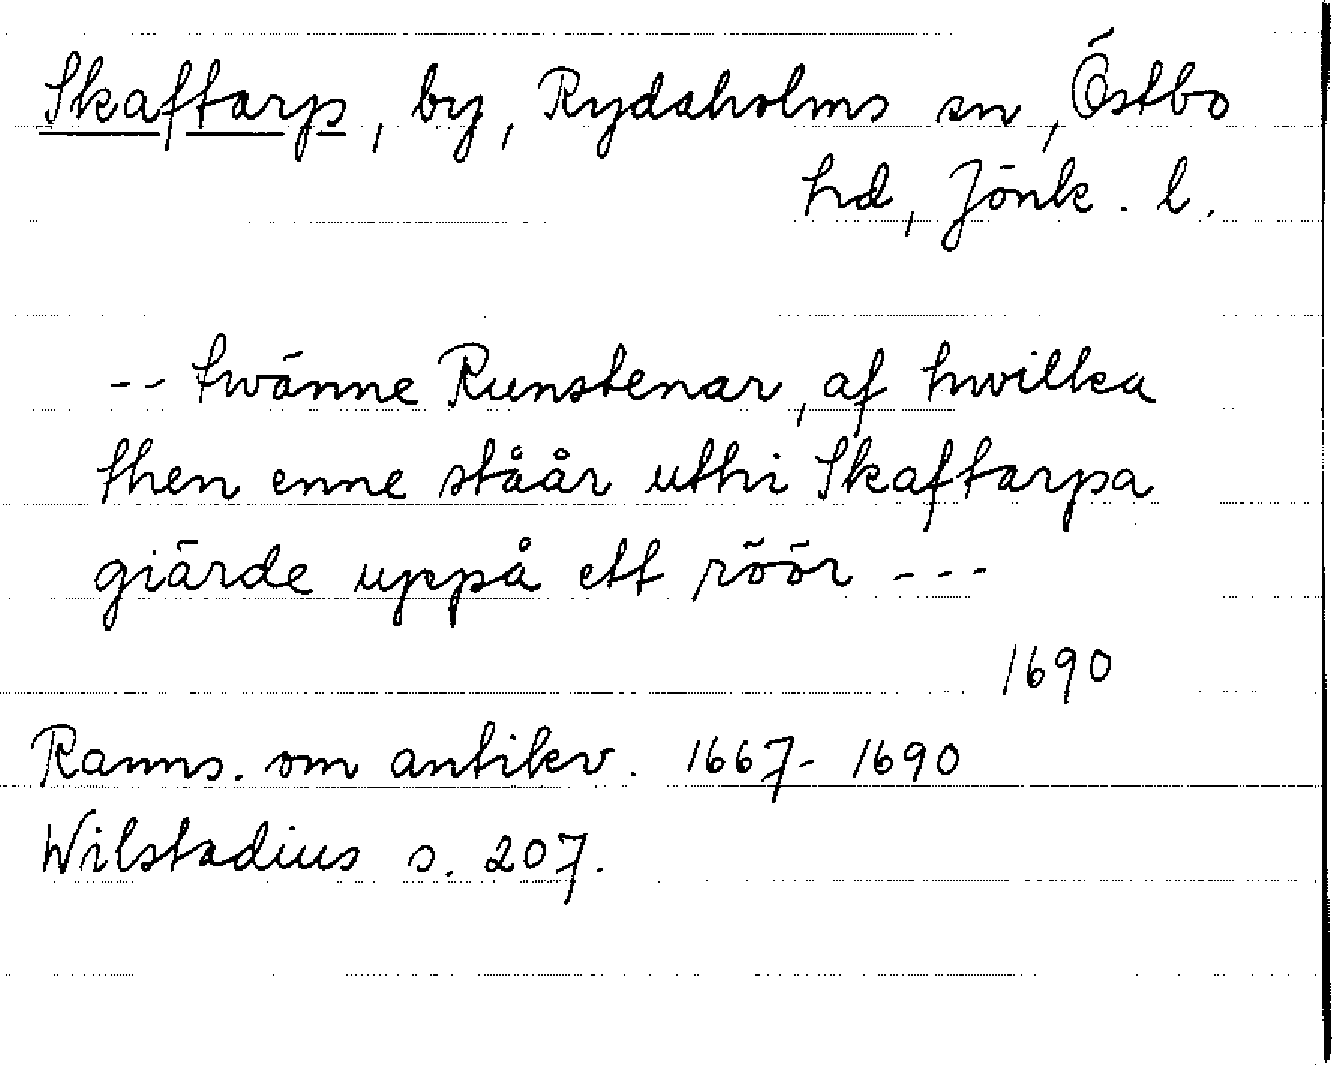 Skaftarp, by, Rydaholms sn, Östbo
hd, Jönk. l.
-- twänne Runstenar, af hwilka
then enne ståår uthi Skaftarpa
giärde uppå ett röör ---
1690
Ranns. om antikv. 1667- 1690
Wilstadius s. 207.